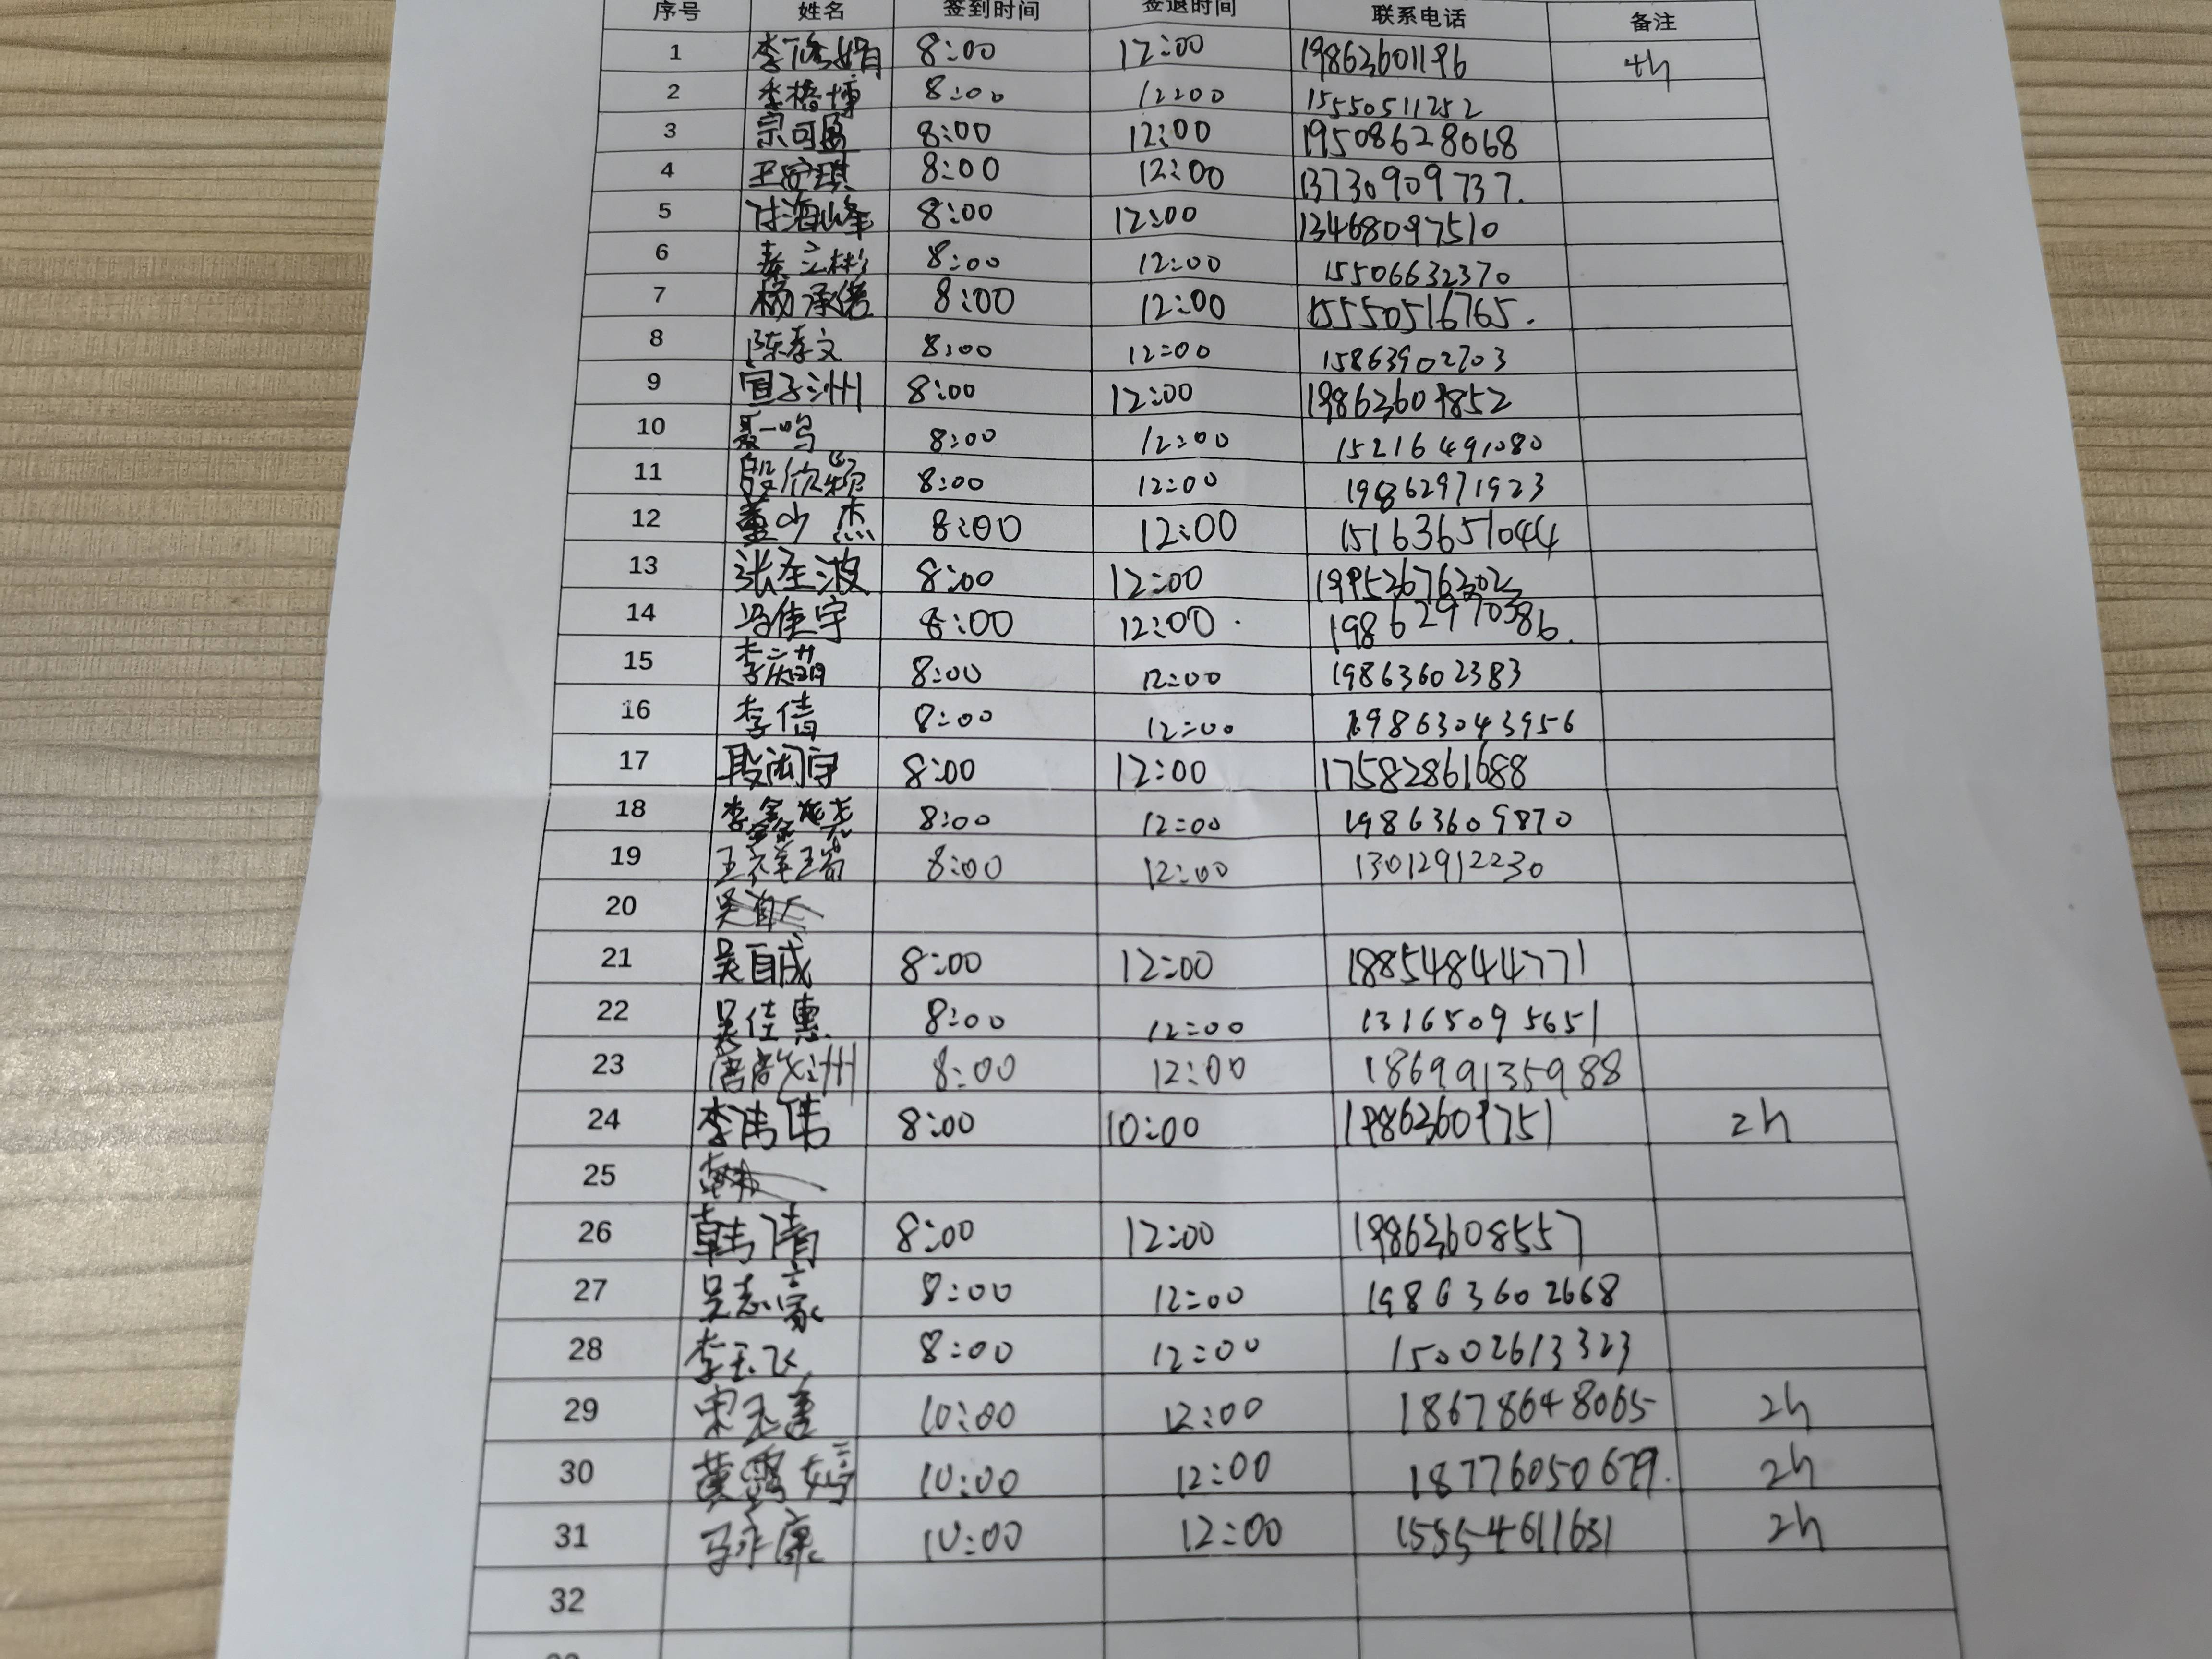 序号 姓名 签到时间 签退时间 联系电话 备注
1 8:00 12:00 19863601196 4h
2 李梧博 8:00 12:00 15550511252
3 宗可盈 8:00 12:00 19508628068
4 王安琪 8:00 12:00 13730909737.
5 付海峰 8:00 12:00 13468097510
6 秦立彬 8:00 12:00 15506632370
7 杨承偌 8:00 12:00 15550516765.
8 陈孝文 8:00 12:00 15863902703
9 宣子洲 8:00 12:00 19863609852
10 聂一鸣 8:00 12:00 15216491080
11 殷欣颖 8:00 12:00 19862971923
12 董少杰 8:00 12:00 15163651044
13 张圣波 8:00 12:00 19953676302
14 冯佳宇 8:00 12:00 19862970386.
15 8:00 12:00 19863602383
16 李倩 8:00 12:00 19863043956
17 段闳宇 8:00 12:00 17582861688
18 李鑫尧 8:00 12:00 19863609870
19 王祥瑞 8:00 12:00 13012912230
20
21 吴自成 8:00 12:00 18854844771
22 吴佳惠 8:00 12:00 13165095651
23 唐尚洲 8:00 12:00 18699135988
24 李伟 8:00 10:00 19863609751 2h
25
26 韩倩 8:00 12:00 19863608557
27 吴志豪 8:00 12:00 19863602668
28 李玉飞 8:00 12:00 15002613323
29 宋孟善 10:00 12:00 18678648065 2h
30 黄露婷 10:00 12:00 18776050679. 2h
31 马永康 10:00 12:00 15554611631 2h
32